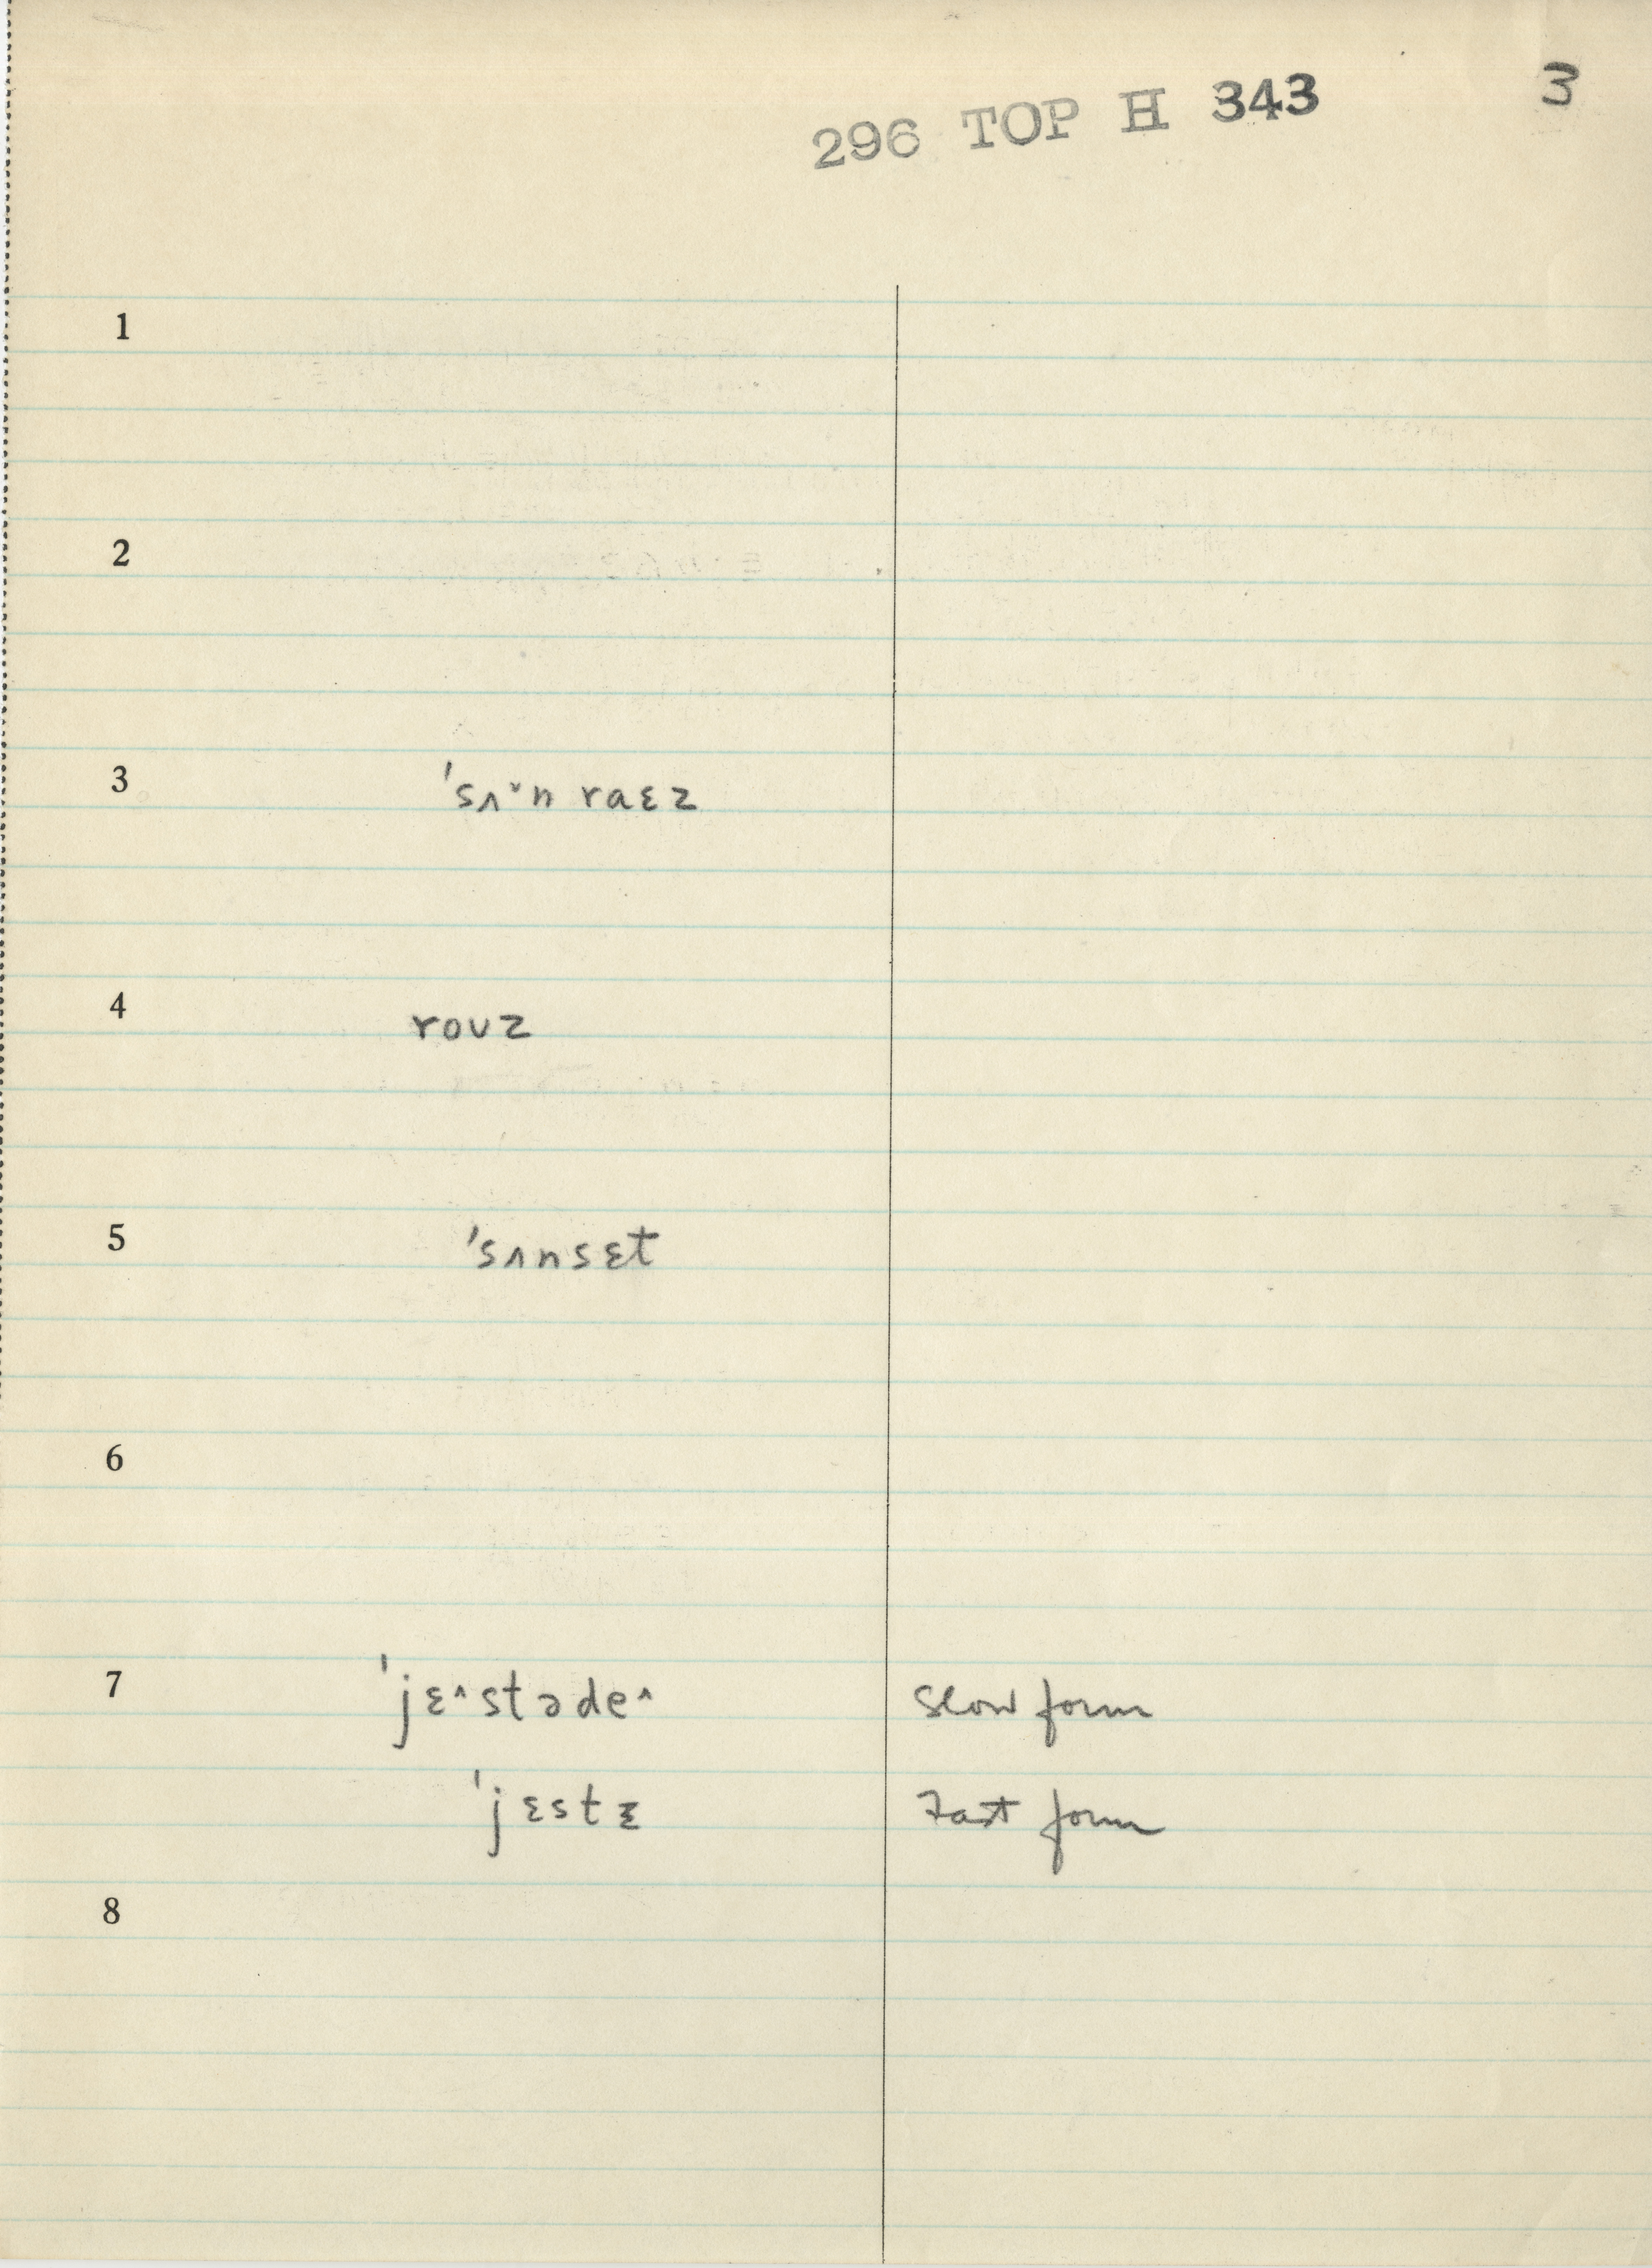 296 TOP H 343 3
1
2
3 'sʌ˅n raɛz
4 roʊz
5 'sʌnsɛt
6
7 'jɛ^stəde^ Slow form
'jɛstɛ Fast form
8